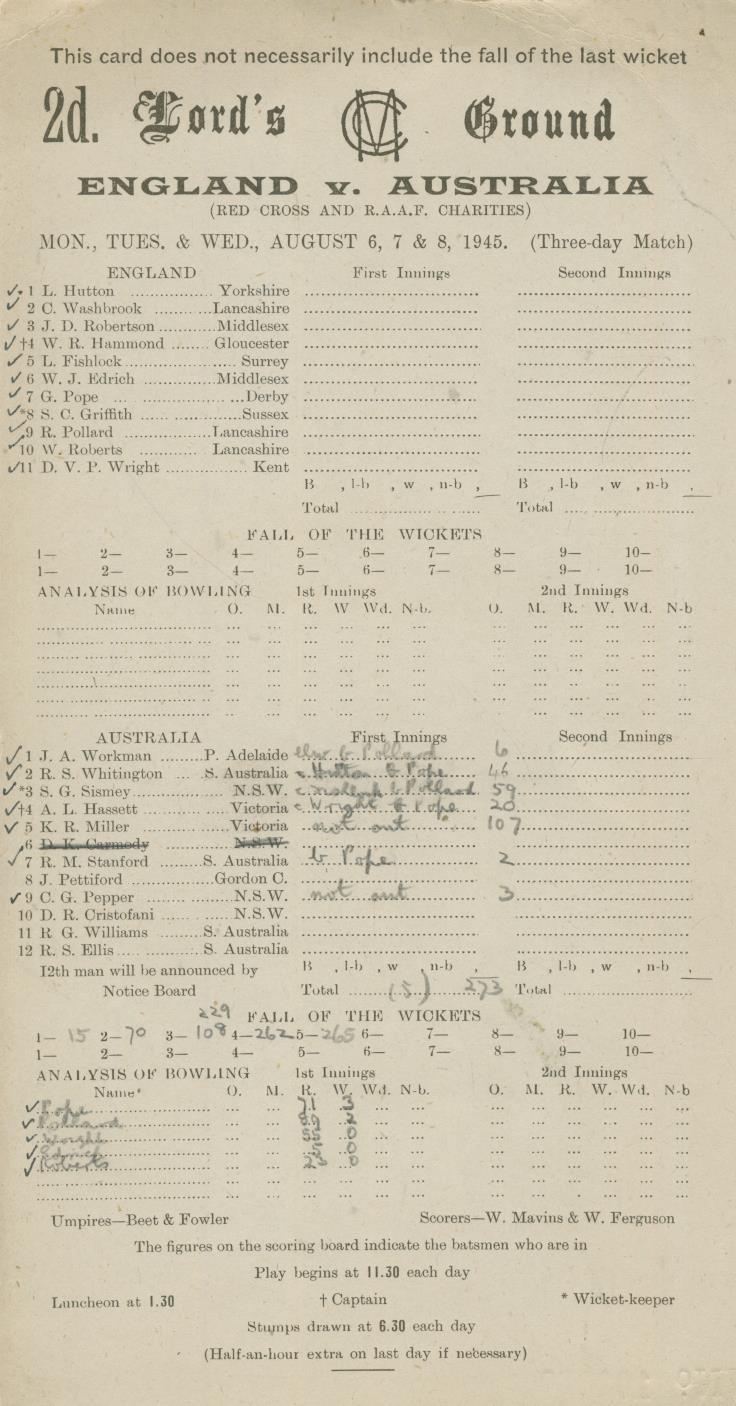 This card does not necessarily include the fall of the last wicket
2d. Lord's MCC Ground
ENGLAND v. AUSTRALIA
(RED CROSS AND R.A.A.F. CHARITIES)
MON., TUES. & WED., AUGUST 6, 7 & 8, 1945. (Three-day Match)
ENGLAND First Innings Second Innings
1 L. Hutton ................ Yorkshire
2 C. Washbrook ............Lancashire
3 J. D. Robertson............Middlesex
†4 W. R. Hammond ........ Gloucester
5 L. Fishlock...................... Surrey
6 W. J. Edrich ...............Middlesex
7 G. Pope ... ...................Derby
*8 S. C. Griffith ...... ..............Sussex
9 R. Pollard .................Lancashire
10 W. Roberts ............ Lancashire
11 D. V. P. Wright ................. Kent
B , l-b , w , n-b , B , l-b , w , n-b ,
Total ........................ Total ........................
FALL OF THE WICKETS
1— 2— 3— 4— 5— 6— 7— 8— 9— 10—
1— 2— 3— 4— 5— 6— 7— 8— 9— 10—
ANALYSIS OF BOWLING 1st Innings 2nd Innings
Name O. M. R. W Wd. N-b. O. M. R. W. Wd. N-b
AUSTRALIA First Innings Second Innings
1 J. A. Workman .........P. Adelaide lbw b Pollard 6
2 R. S. Whitington .... S. Australia c Hutton b Pope 46
*3 S. G. Sismey .................. N.S.W. c b Pollard 59
†4 A. L. Hassett ............... Victoria c Wright b Pope 20
5 K. R. Miller .................. Victoria not out 107
6 D. K. Carmody N.S.W.
7 R. M. Stanford .........S. Australia b Pope 2
8 J. Pettiford ..................Gordon C.
9 C. G. Pepper .................. N.S.W. not out 3
10 D. R. Cristofani ...... ......... N.S.W.
11 R G. Williams .........S. Australia
12 R. S. Ellis..... ............ S. Australia
12th man will be announced by B , l-b , w , n-b , B , l-b , w , n-b ,
Notice Board Total (5) 273 Total ........................
229
FALL OF THE WICKETS
1— 15 2—70 3— 108 4—262 5—265 6— 7— 8— 9— 10—
1— 2— 3— 4— 5— 6— 7— 8— 9— 10—
ANALYSIS OF BOWLING 1st Innings 2nd Innings
Name* O. M. R. W. Wd. N-b. O. M. R. W. Wd. N-b
Pope 71 3
Pollard 2
Wright 0
Edrich 0
Roberts 23 0
Umpires—Beet & Fowler Scorers—W. Mavins & W. Ferguson
The figures on the scoring board indicate the batsmen who are in
Play begins at 11.30 each day
Luncheon at 1.30 † Captain * Wicket-keeper
Stumps drawn at 6.30 each day
(Half-an-hour extra on last day if necessary)